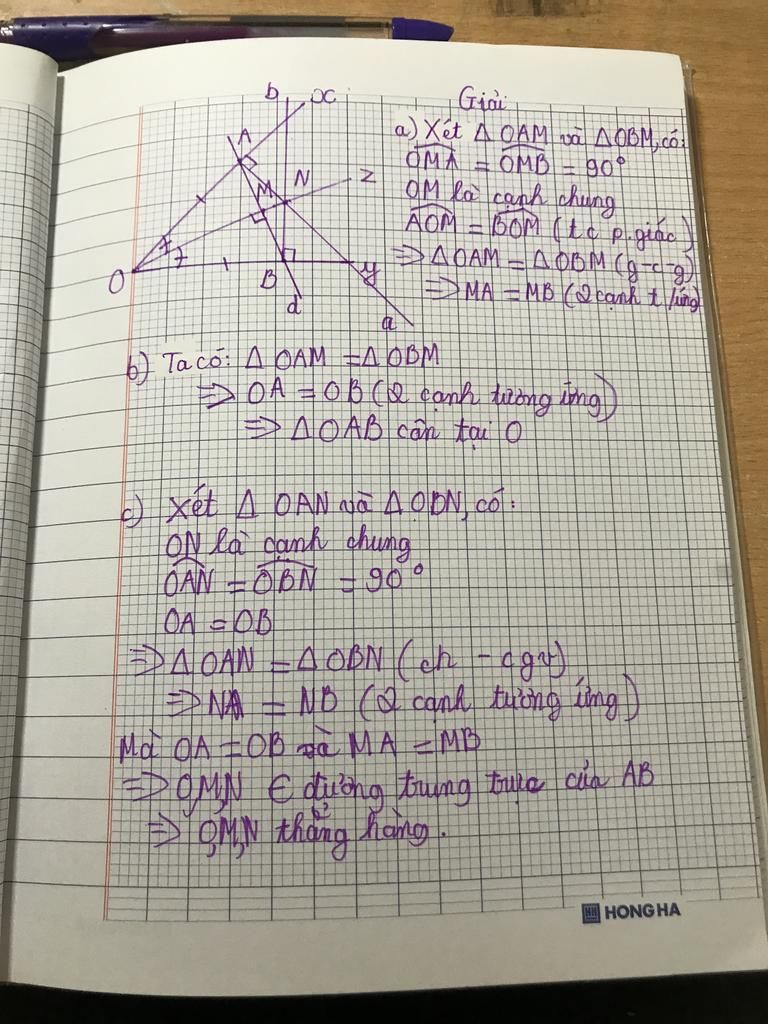 Giải
b x
A
N z
M
O B y
d a
a) Xét Δ OAM và ΔOBM, có:
OMA = OMB = 90°
OM là cạnh chung
AOM = BOM (t c p. giác)
=> Δ OAM = Δ OBM (g-c-g)
=> MA = MB (2 cạnh t/ứng)
b) Ta có: Δ OAM = Δ OBM
=> OA = OB (2 cạnh tương ứng)
=> Δ OAB cân tại O
c) Xét Δ OAN và Δ OBN, có:
ON là cạnh chung
OAN = OBN = 90°
OA = OB
=> Δ OAN = Δ OBN (ch - cgv)
=> NA = NB (2 cạnh tương ứng)
Mà OA = OB và MA = MB
=> O,M,N ∈ đường trung trực của AB
=> O,M,N thẳng hàng.
HH HONG HA